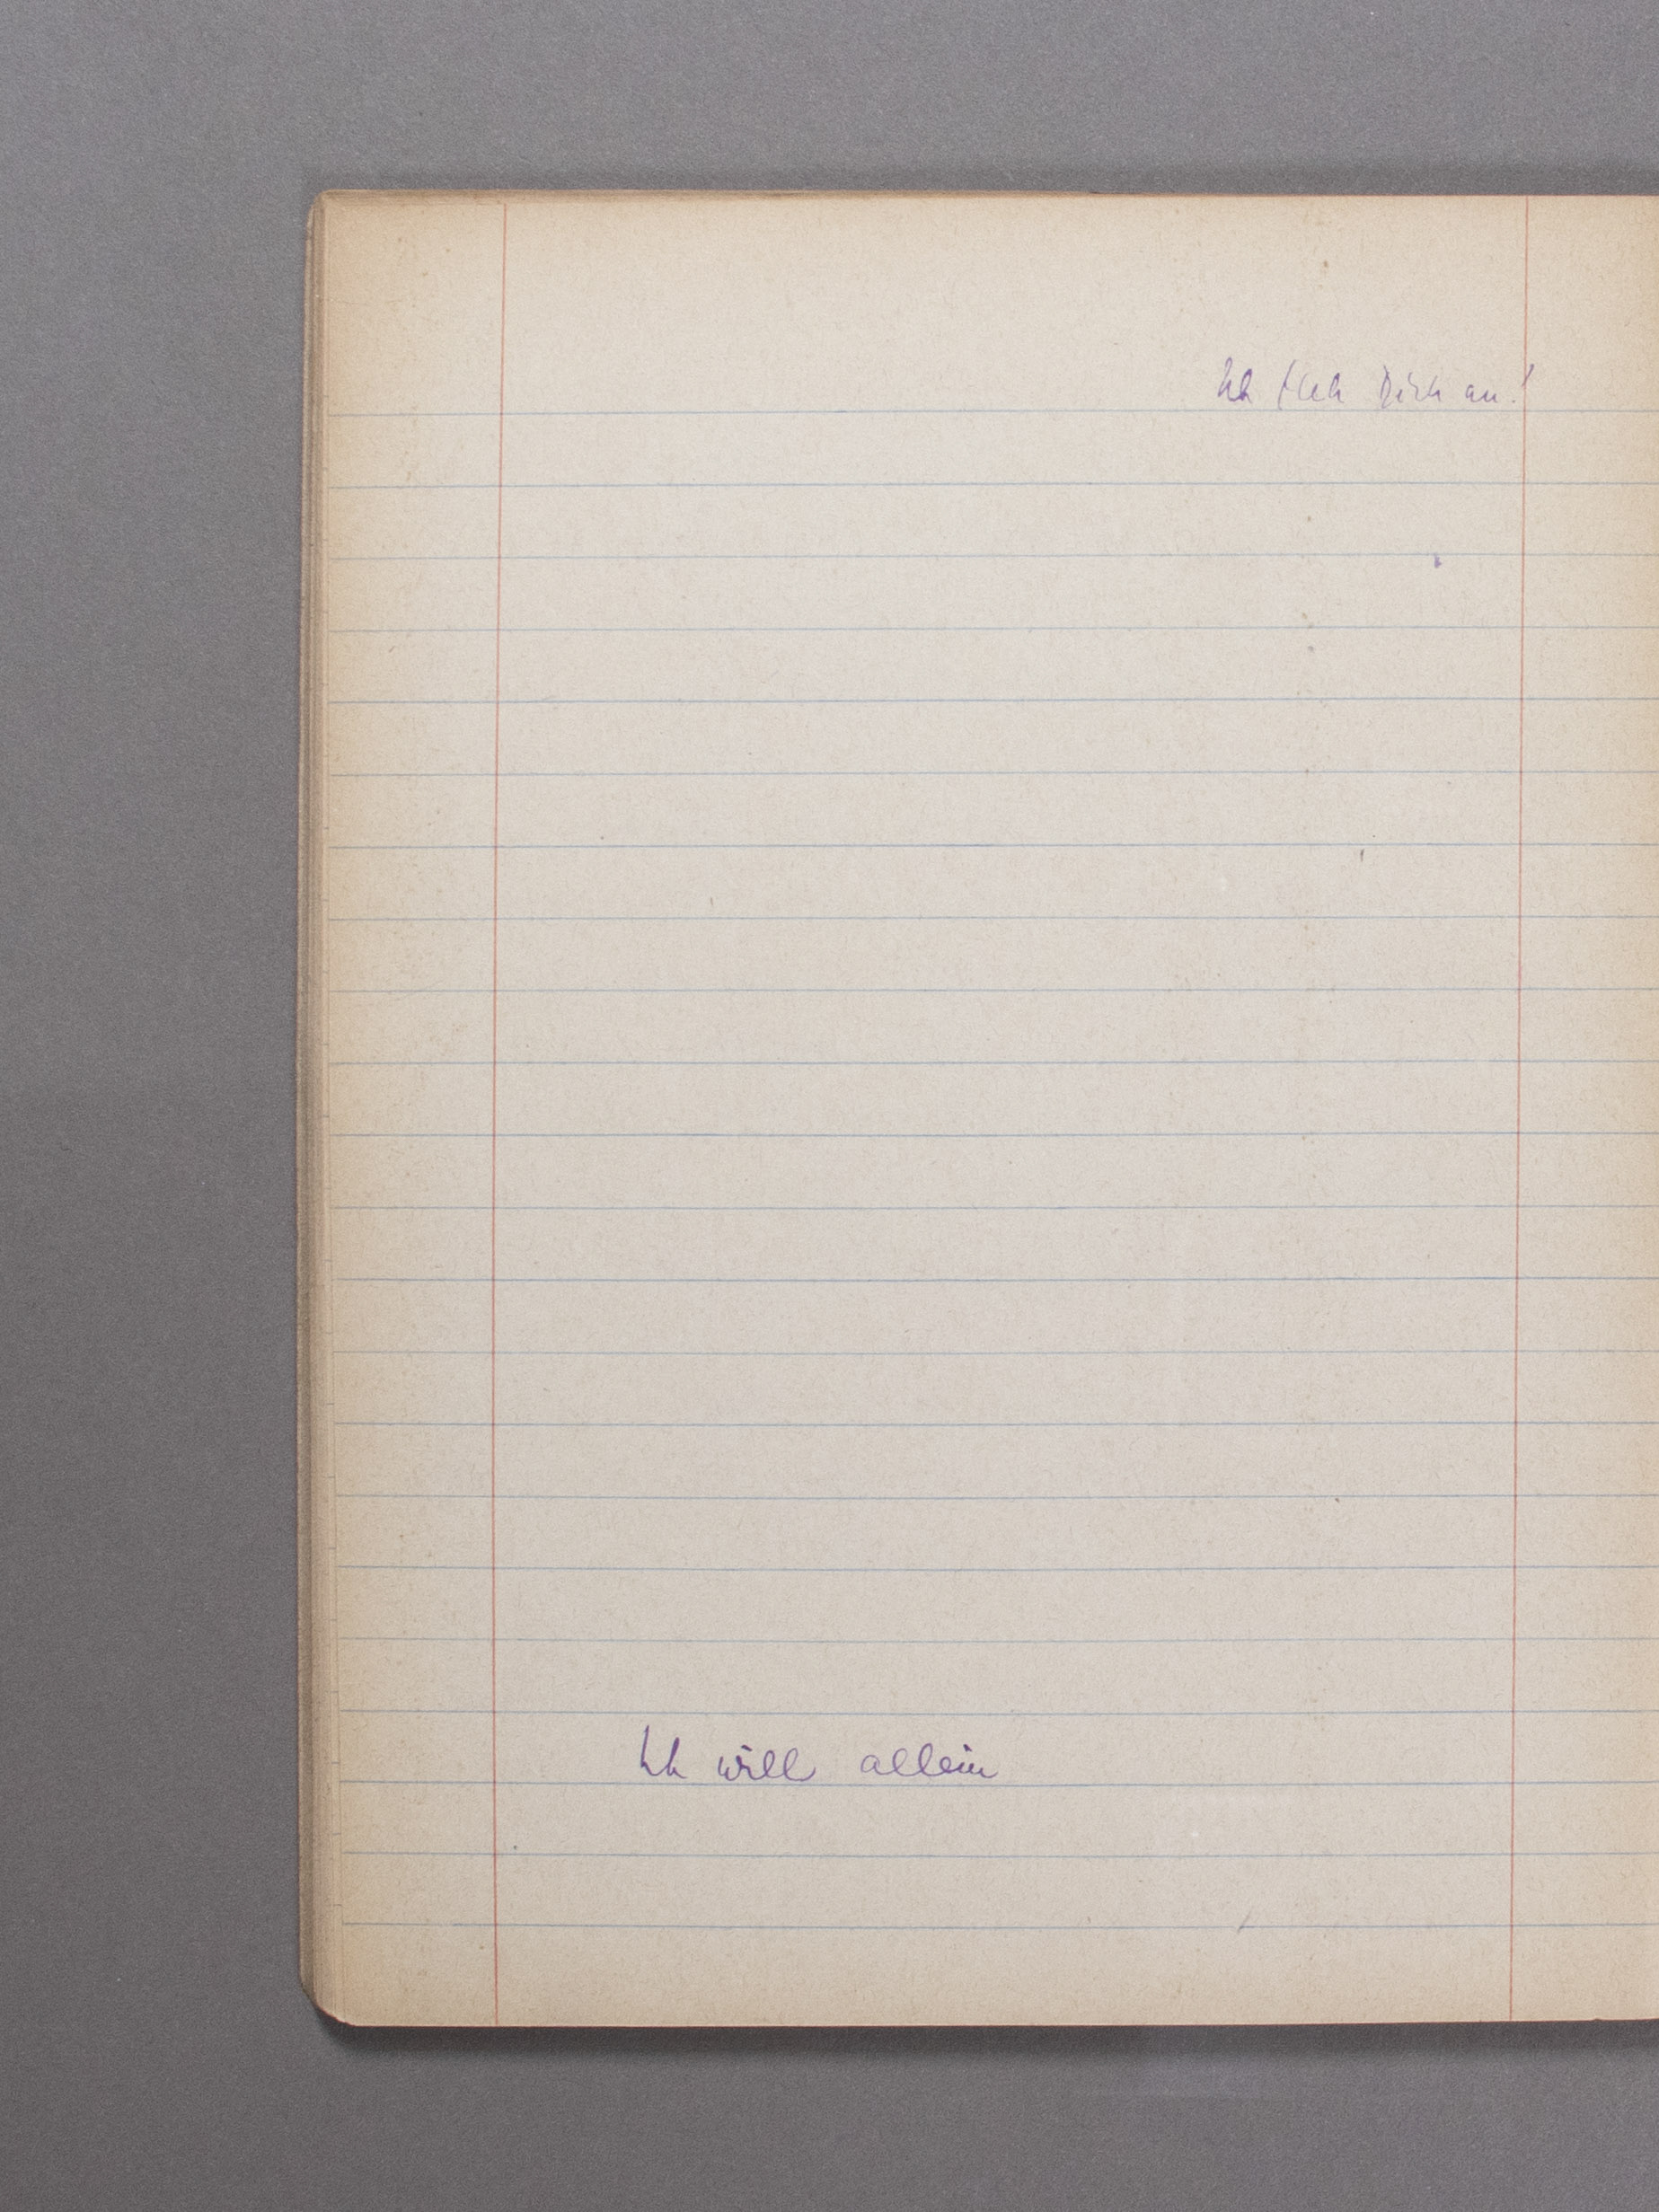 Ich fleh Dich an!
Ich will allein